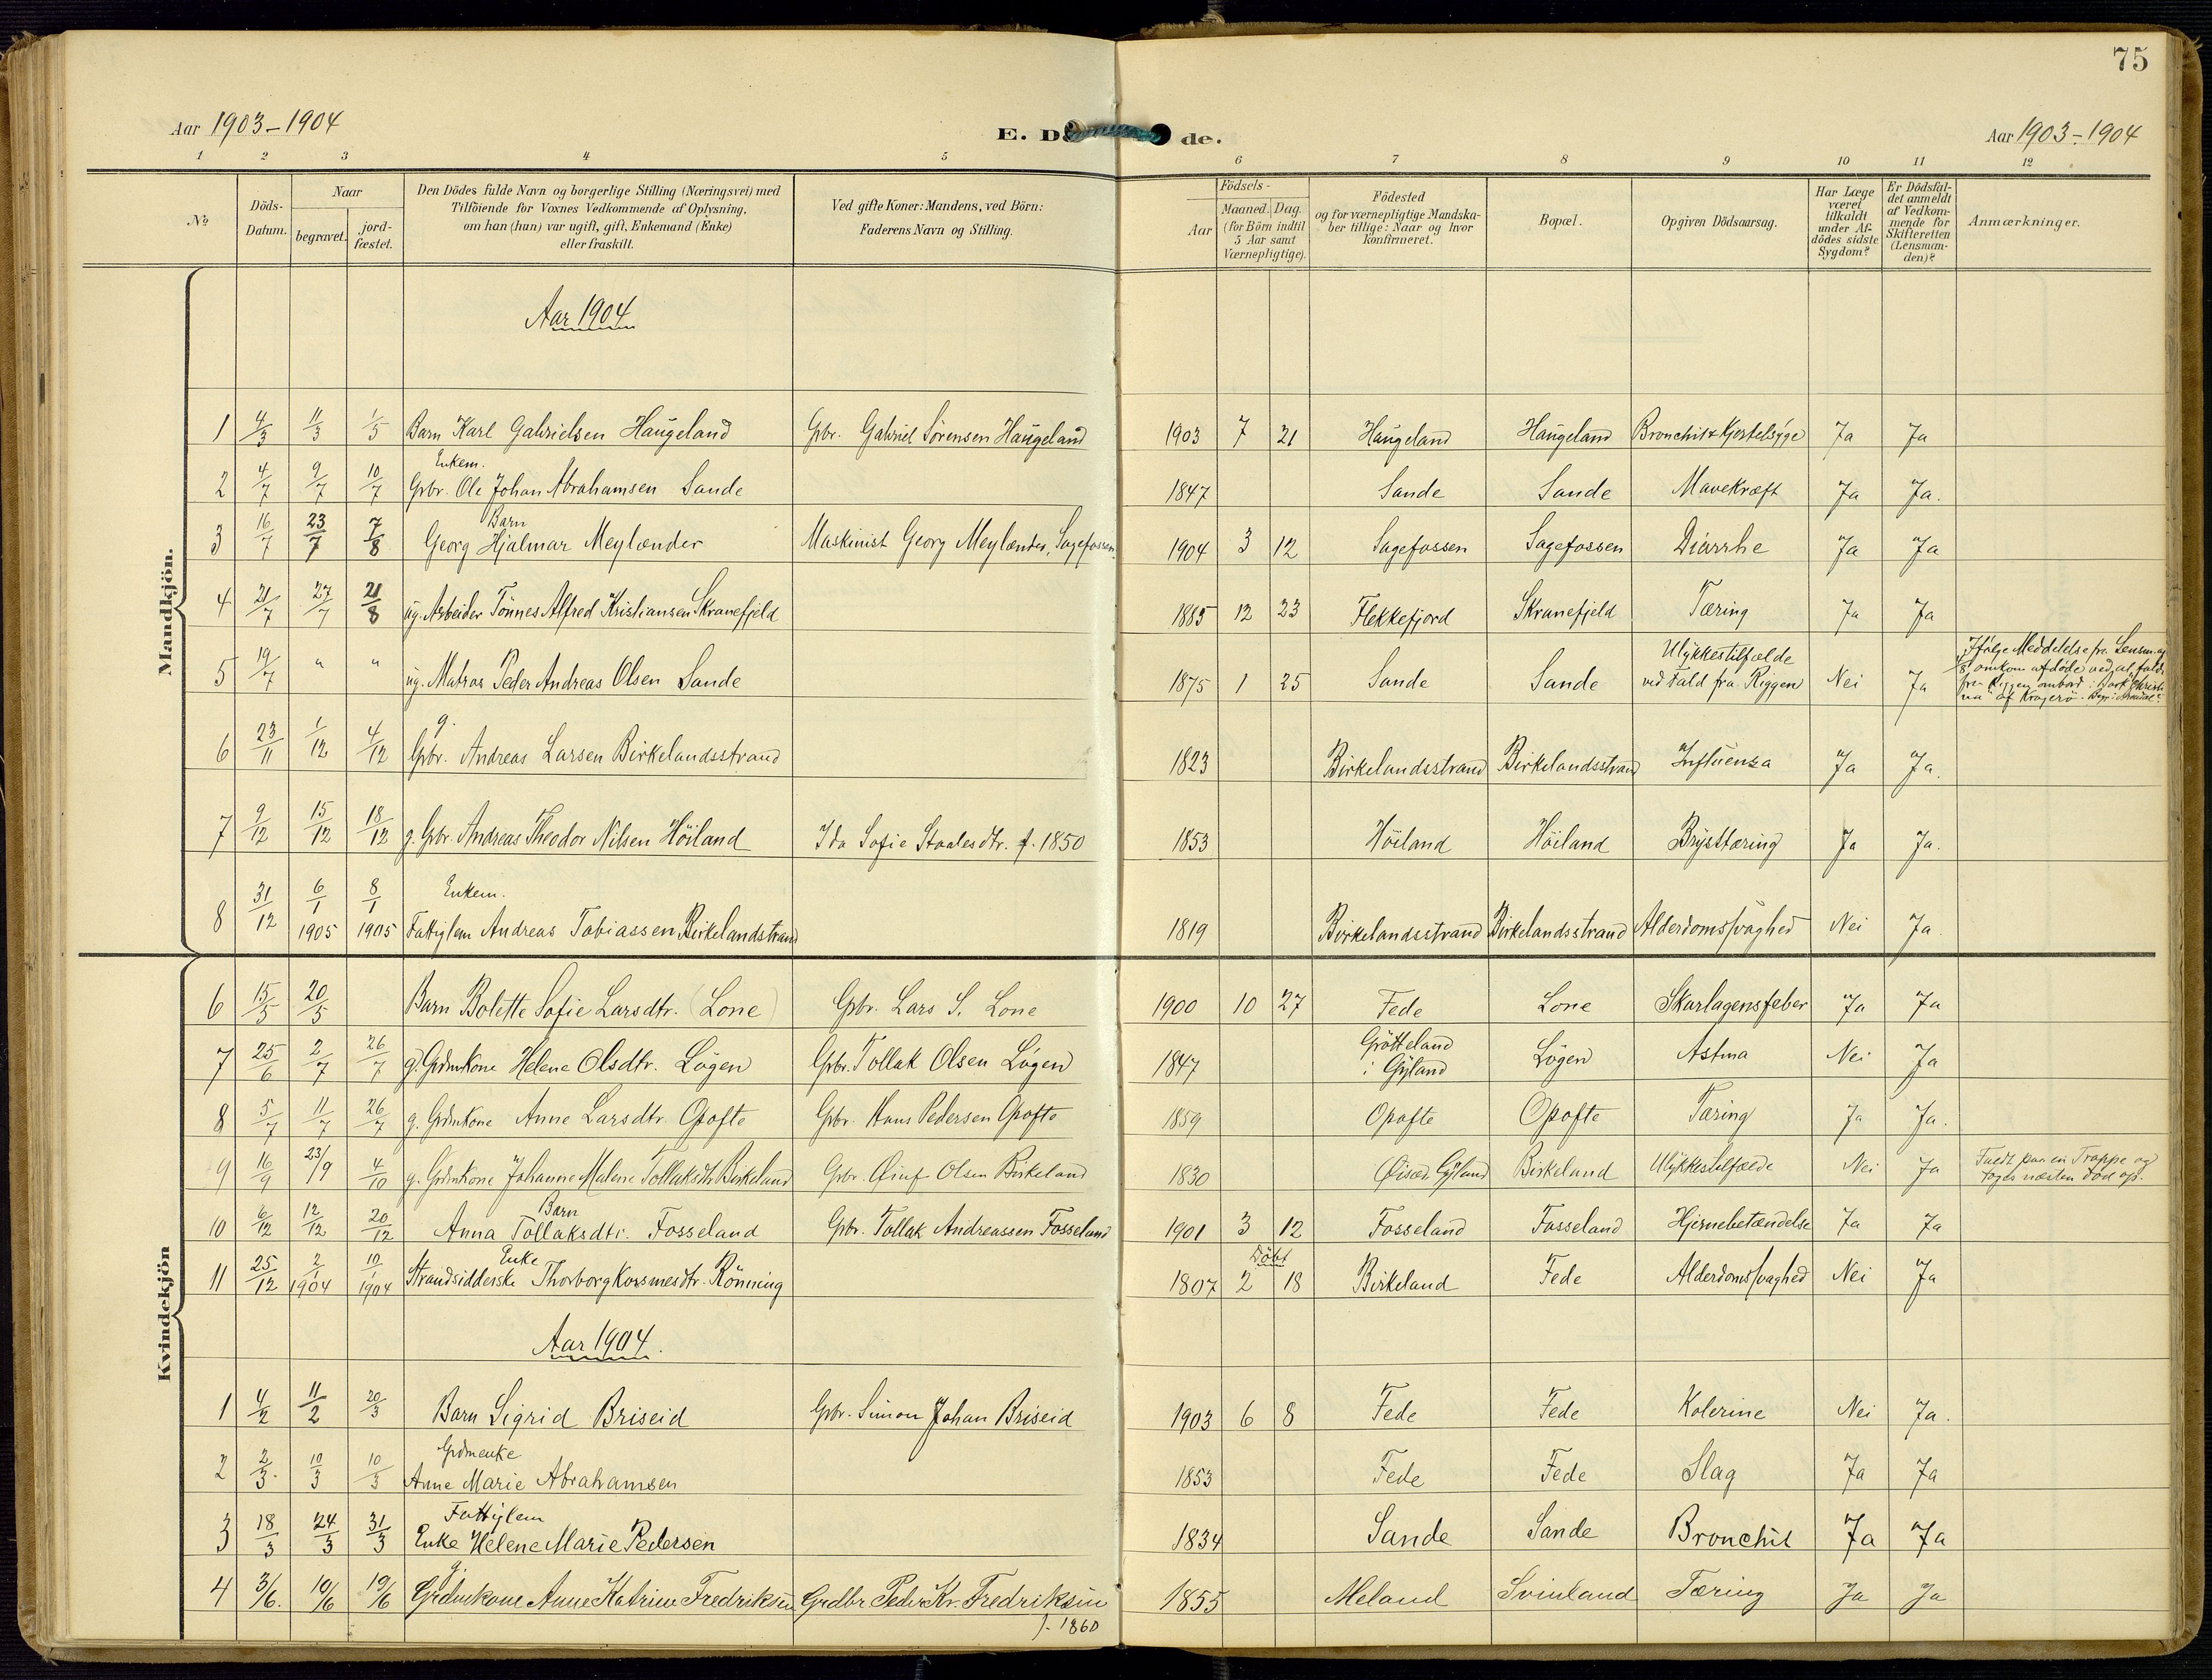 75
Aar 1903-1904
E. Dö de.
Aar 1903-1904
1 2 3 4 5 6 7 8 9 10 11 12
No.
Döds-Datum.
Naar
begravet.
jord-fæstet.
Den Dödes fulde Navn og borgerlige Stilling (Næringsvei) med
Tilföiende for Voxnes Vedkommende af Oplysning,
om han (hun) var ugift, gift, Enkemand (Enke)
eller fraskilt.
Ved gifte Koner: Mandens, ved Börn:
Faderens Navn og Stilling.
Födsels-
Aar
Maaned. Dag.
(for Börn indtil
5 Aar samt
Værnepligtige).
Födested
og for værnepligtige Mandska-
ber tillige: Naar og hvor
konfirmeret.
Bopæl.
Opgiven Dödsaarsag.
Har Læge
været
tilkaldt
under Af-
dödes sidste
Sygdom?
Er Dödsfal-
det anmeldt
af Vedkom-
mende for
Skifteretten
(Lensman-
den)?
Anmærkninger.
Mandkjön.
Aar 1904
1 4/3 11/3 1/5 Barn Karl Gabrielsen Haugeland Gbr. Gabriel Sörensen Haugeland 1903 7 21 Haugeland Haugeland Bronchit & Kjertelsyge Ja Ja
Enkem.
2 4/7 9/7 10/7 Gbr. Ole Johan Abrahamsen Sande 1847 Sande Sande Mavekræft Ja Ja.
Barn
3 16/7 23/7 7/8 Georg Hjalmar Meylænder Maskinist Georg Meylænder, Sagefossen 1904 3 12 Sagefossen Sagefossen Diarrhe Ja Ja
4 21/7 27/7 21/8 ug. Arbeider Tönnes Alfred Kristiansen Skranefjeld 1885 12 23 Flekkefjord Skranefjeld Tæring Ja Ja
5 19/7 " " ug. Matros Peder Andreas Olsen Sande 1875 1 25 Sande Sande Ulykkestilfælde
ved Fald fra Riggen Nei Ja Ifölge Meddelelse fra Lensm.
omkom afdöde ved at falde
fra Riggen ombord i Bark
af Kragerö.
g.
6 23/11 1/12 4/12 Gbr. Andreas Larsen Birkelandsstrand 1823 Birkelandsstrand Birkelandsstrand Influenza Ja Ja.
7 9/12 15/12 18/12 g. Gbr. Andreas Theodor Nilsen Höiland Ida Sofie Staalesdtr. f. 1850 1853 Höiland Höiland Brysttæring Ja Ja.
Enkem.
8 31/12 6/1 1905 8/1 1905 Fattiglem Andreas Tobiassen Birkelandstrand 1819 Birkelandsstrand Birkelandsstrand Alderdomssvaghed Nei Ja
Kvindekjön
6 15/5 20/5 Barn Bolette Sofie Larsdtr. (Lone) Gbr. Lars S. Lone 1900 10 27 Fede Lone Skarlagensfeber Ja Ja
7 25/6 2/7 26/7 g. Grdmkone Helene Olsdtr. Lögen Gbr. Tollak Olsen Lögen 1847 Grötteland
i Gyland Lögen Astma Nei Ja
8 5/7 11/7 26/7 g. Grdmkone Anne Larsdtr. Opofte Gbr. Hans Pedersen Opofte 1859 Opofte Opofte Tæring Ja Ja.
9 16/9 23/9 4/10 g. Grdmkone Johanne Malene Tollaksdtr Birkeland Gbr. Olsen Birkeland 1830 Gyland Birkeland Ulykkestilfælde Nei Ja Faldt paa en Trappe og
toges næsten död op.
Barn
10 6/12 12/12 20/12 Anna Tollaksdtr. Fosseland Gbr. Tollak Andreassen Fosseland 1901 3 12 Fosseland Fosseland Hjernebetændelse Ja Ja
Enke
Döbt
11 25/12 2/1 1904 10/1 1904 Strandsidderske Thorborg Korsmesdtr. Rönning 1807 2 18 Birkeland Fede Alderdomssvaghed Nei Ja
Aar 1904.
1 4/2 11/2 20/3 Barn Sigrid Briseid Gbr. Simon Johan Briseid 1903 6 8 Fede Fede Kolerine Nei Ja.
Grdmenke
2 2/3. 10/3 10/3 Anne Marie Abrahamsen 1853 Fede Fede Slag Ja Ja
Fattiglem
3 18/3 24/3 31/3 Enke Helene Marie Pedersen 1834 Sande Sande Bronchit Ja Ja
g.
4 3/6. 10/6 19/6 Grdmkone Anne Katrine Fredriksen Grdbr Peder Kr. Fredriksen 1855 Meland Svinland Tæring Ja Ja
f. 1860